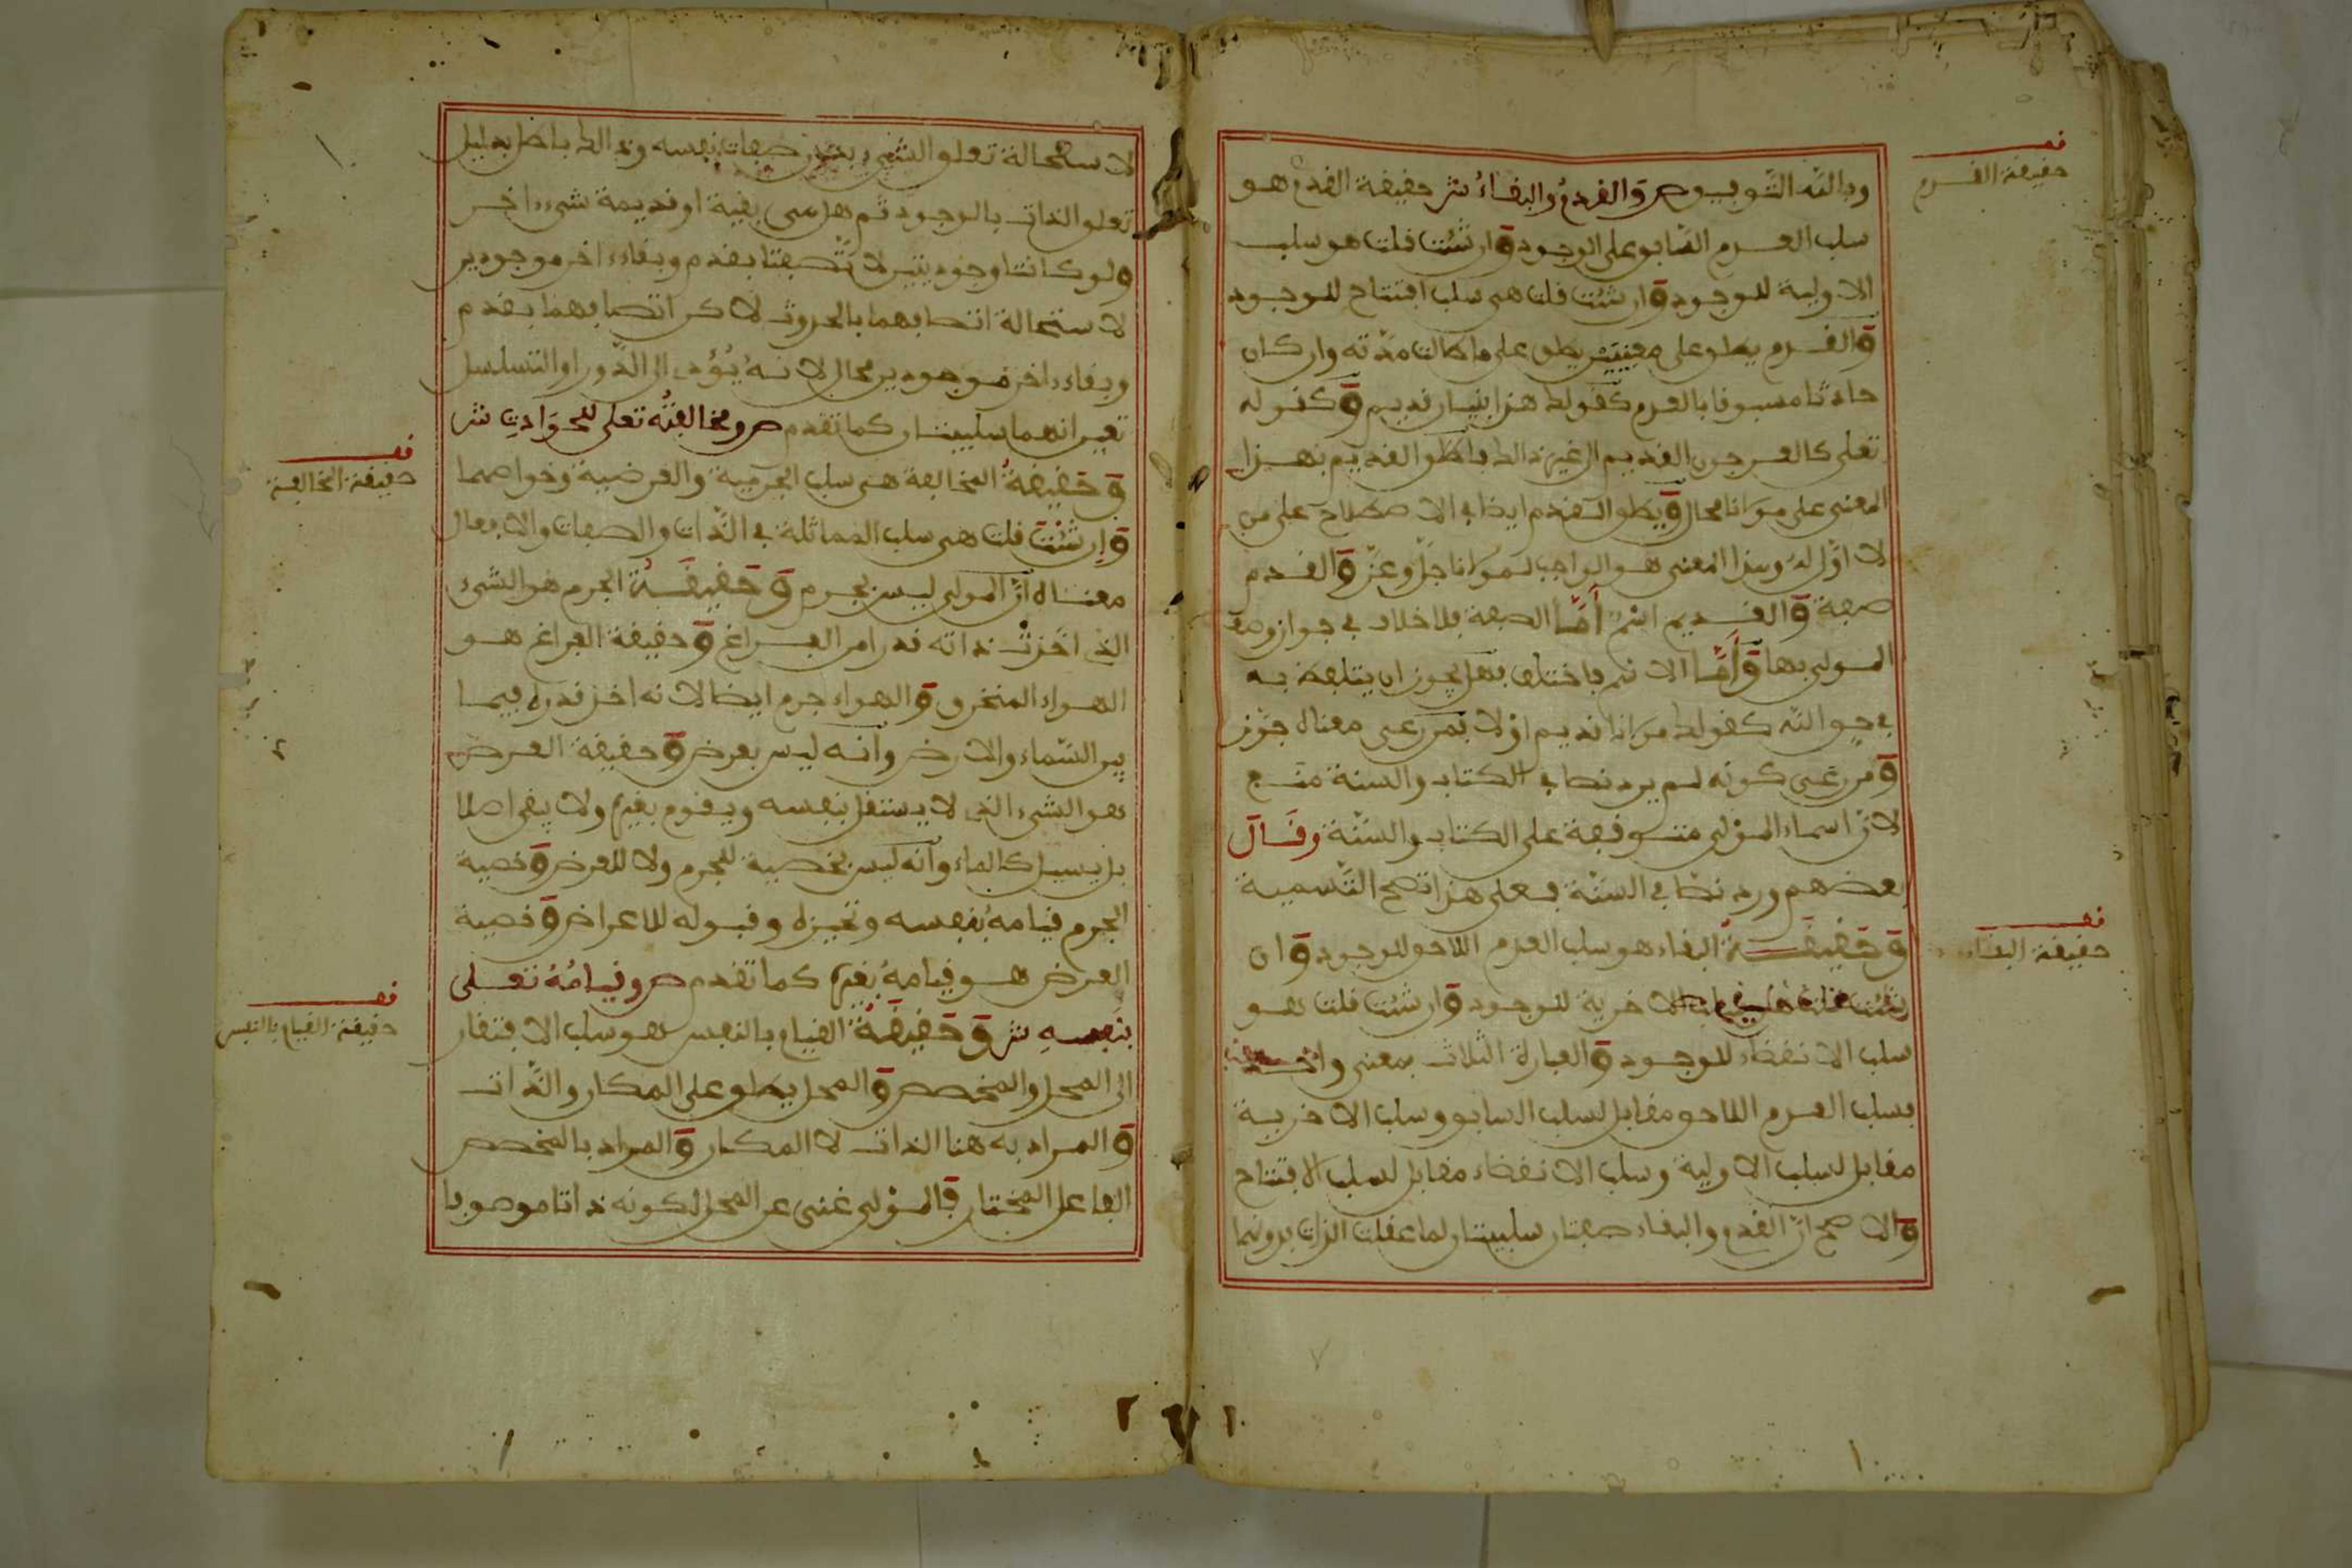 قف
حقيقة القدم
وبالله التوفيق ص والقدم والبقاء ش حقيقة القدم هو
سلب العدم السابق على الوجود وان شئت قلت هو سلب
الاولية للوجود وان شئت قلت هي سلب افتتاح للوجود
والقدم يطلق على معنيين يطلق على ما طالت مدته وان كان
حادثا مسبوقا بالعدم كقولك هذا بنيان قديم وكقوله
تعلى كالعرجون القديم الى غير ذالك فاطلاق القديم بهذا
المعنى على مولانا محال ويطلق القدم ايضا في الاصطلاح على من
لا اول له وهذا المعنى هو الواجب لمولانا جل وعز والقدم
صفة والقديم اسم أما الصفة فلا خلاف في جواز وصف
المولى بها وأما الاسم فاختلف فهل يجوز ان يتلفظ به
في حق الله كقولك مولانا قديم اولا فمن رعى معناه جوز
ومن رعى كونه لم يرد نصا في الكتاب والسنة منع
لان اسماء المولى متوقفة على الكتاب والسنة وقال
بعضهم ورد نصا في السنة فعلى هذا تصح التسمية
قف
حقيقة البقاء
وحقيقة البقاء هو سلب العدم اللاحق للوجود وان
شئت قلت هي سلب الاخرية للوجود وان شئت قلت هو
سلب الانقضاء للوجود والعبارة الثلاث بمعنى واحد
فسلب العدم اللاحق مقابل لسلب السابق وسلب الاخرية
مقابل لسلب الاولية وسلب الانقضاء مقابل لسلب الافتتاح
والاصح ان القدم والبقاء صفتان سلبيتان لما عقلت الذات بدونهما
لاستحالة تعلق الشيء بدون صفات نفسه وذالك باطل بدليل
تعلق الذات بالوجود ثم هل هي بقية او قديمة شيء اخر
ولو كانتا وجوديتين لا تصفتا بقدم وبقاء اخر موجودين
لاستحالة اتصافهما بالحدوث لاكن اتصافهما بقدم
وبقاء اخر موجودين محال لانه يؤدي الى الدور او التسلسل
تعين انهما سلبيتان كما تقدم ص ومخالفته تعلى للحوادث ش
قف
حقيقة المخالفة
وحقيقة المخالفة هي سلب الجرمية والعرضية وخواصهما
وإن شئت قلت هي سلب المماثلة في الذات والصفات والافعال
معناه ان المولى ليس بجرم وحقيقة الجرم هو الشيء
الذي اخذت ذاته قدرا من الفراغ وحقيقة الفراغ هو
الهواء المنخرق والهواء جرم ايضا لانه اخذ قدره فيما
بين السماء والارض وانه ليس بعرض وحقيقة العرض
هو الشيء الذي لا يستقل بنفسه ويقوم بغيره ولا يبقى اصلا
بل يسيل كالماء وانه ليس بخصية للجرم ولا للعرض وخصية
الجرم قيامه بنفسه وتحيزه وقبوله للاعراض وخصية
العرض هو قيامه بغيره كما تقدم ص وقيامه تعلى
قف
حقيقة القيام بالنفس
بنفسه ش وحقيقة القيام بالنفس هو سلب الافتقار
الى المحل والمخصص والمحل يطلق على المكان والذات
والمراد به هنا الذات لا المكان والمراد بالمخصص
الفاعل المختار فالمولى غني عن المحل لكونه ذاتا موصوفا